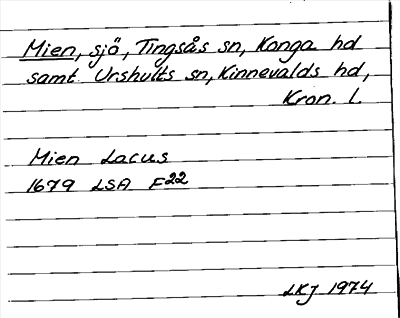 Mien, sjö, Tingsås sn, Konga hd
samt Urshults sn, Kinnevalds hd,
Kron. l.
Mien Lacus
1679 LSA F22
LKJ 1974